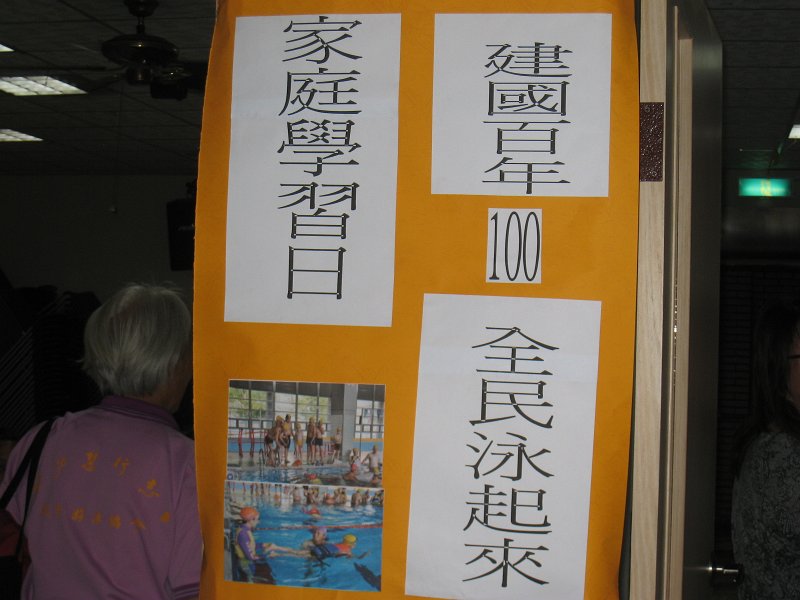 建國百年
100
全民泳起來
家庭學習日